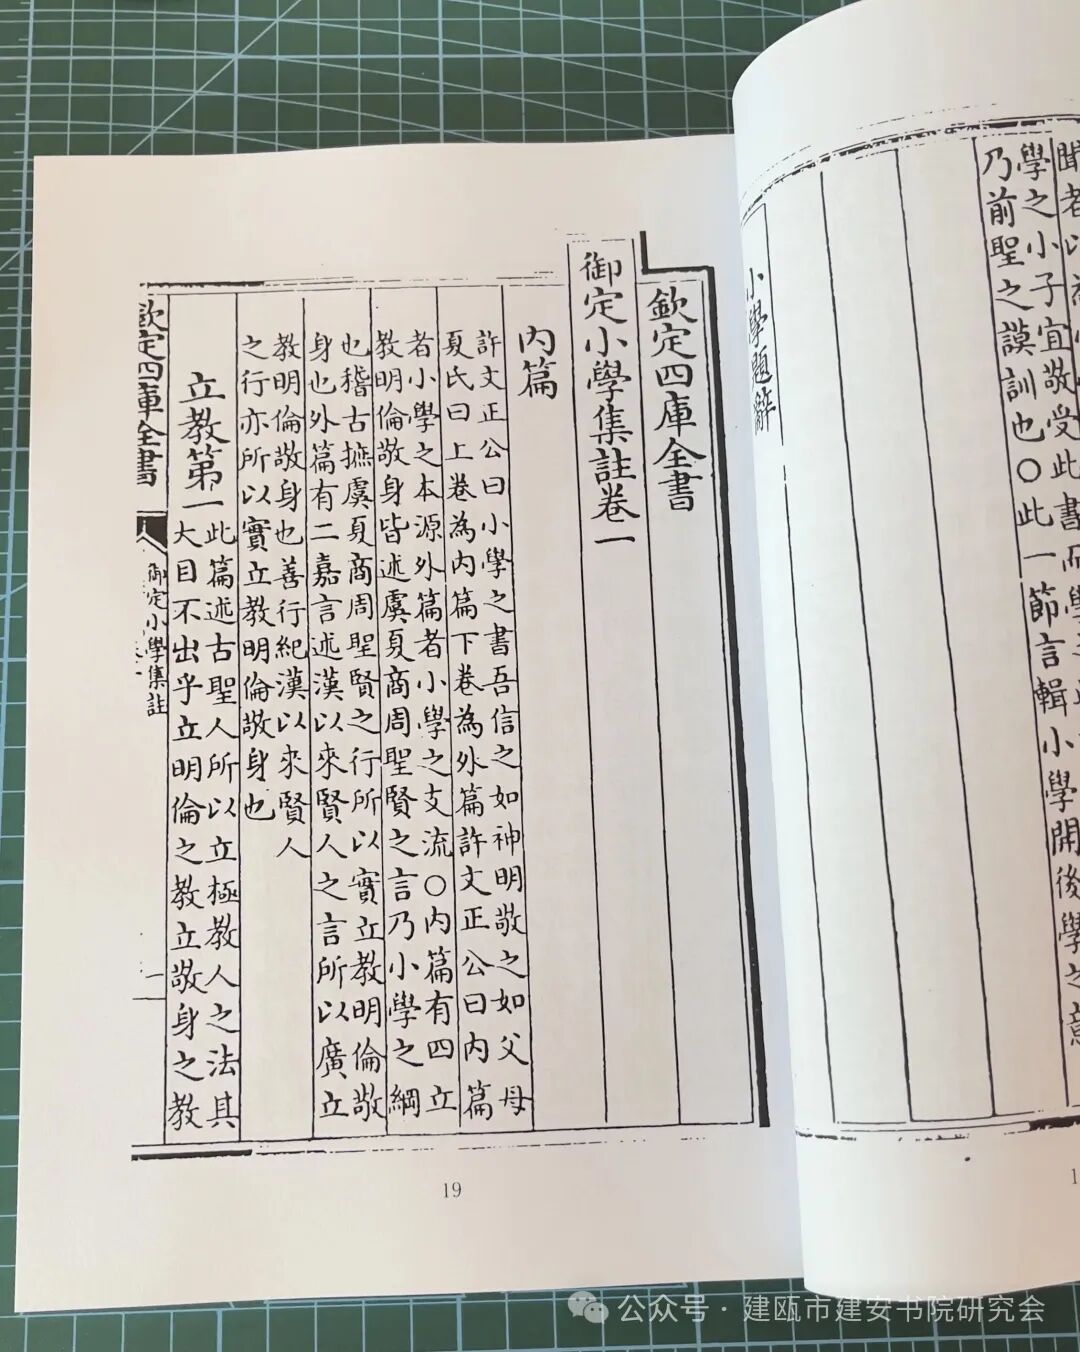 學之小子宜敬受此書而學之
乃前聖之謨訓也○此一節言輯小學開後學之意
小學題辭
欽定四庫全書
御定小學集註卷一
内篇
許文正公曰小學之書吾信之如神明敬之如父母
夏氏曰上卷為内篇下卷為外篇許文正公曰内篇
者小學之本源外篇者小學之支流○内篇有四立
教明倫敬身皆述虞夏商周聖賢之言乃小學之綱
也稽古摭虞夏商周聖賢之行所以實立教明倫敬
身也外篇有二嘉言述漢以來賢人之言所以廣立
教明倫敬身也善行紀漢以來賢人
之行亦所以實立教明倫敬身也
立教第一
此篇述古聖人所以立極教人之法其
大目不出乎立明倫之教立敬身之教
欽定四庫全書
御定小學集註
一
19
公众号·建瓯市建安书院研究会